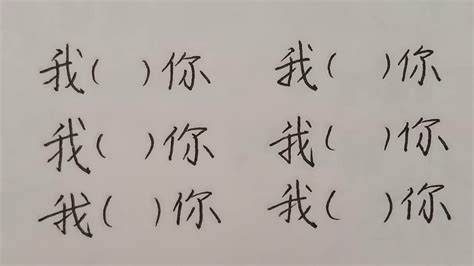 我( )你 我( )你
我( )你 我( )你
我( )你 我( )你